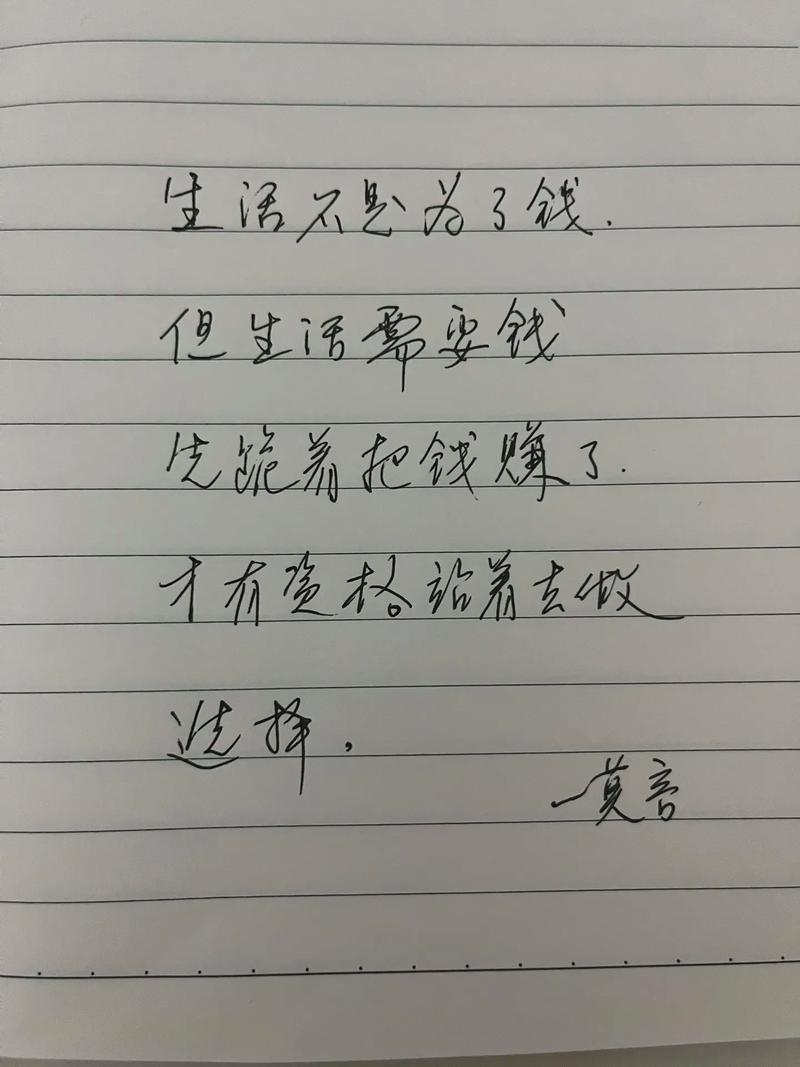 生活不是为了钱.
但生活需要钱
先跪着把钱赚了.
才有资格站着去做
选择.
—莫言